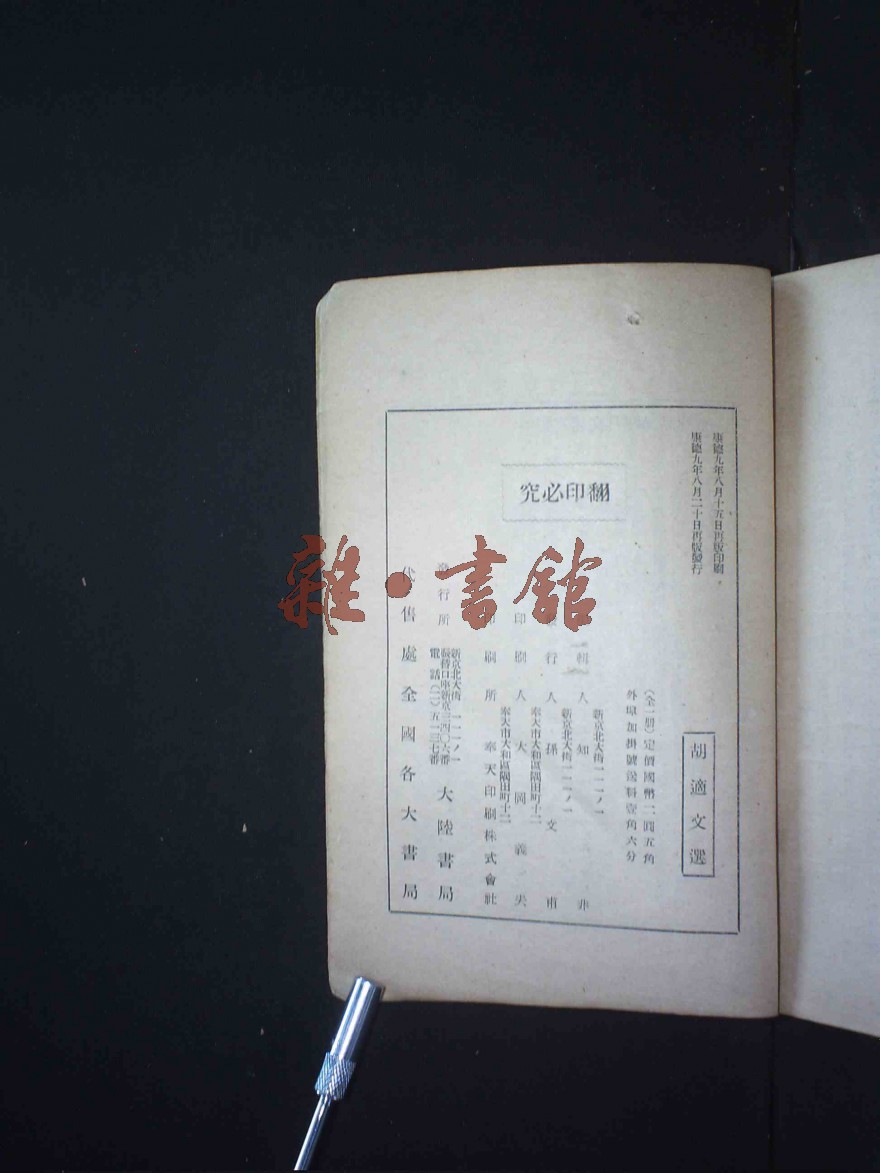 康德九年八月十五日再版印刷
康德九年八月二十日再版發行
胡適文選
(全一册)定價國幣二圓五角
外埠加掛號送料壹角六分
翻印必究
新京北大街一一一ノ一
輯人 知非
新京北大街一一一ノ一
行人 孫文甫
奉天市大和區隅田町十二
印刷人 大岡義夫
奉天市大和區隅田町十二
印刷所 奉天印刷株式會社
發行所 大陸書局
新京北大街一一一ノ一
振替口座新京三四〇六番
電話(二)五一三七番
代售處全國各大書局
雜·書館